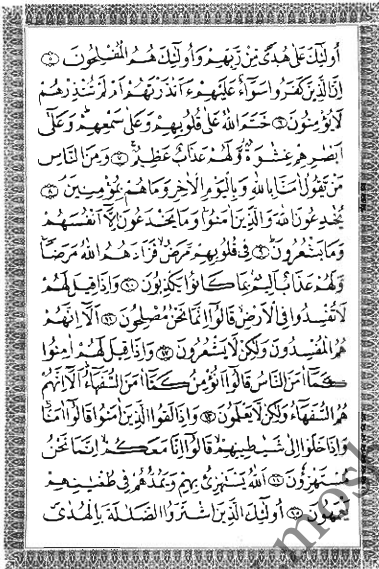 أُولَٰئِكَ عَلَىٰ هُدًى مِنْ رَبِّهِمْ وَأُولَٰئِكَ هُمُ الْمُفْلِحُونَ ۝٥
إِنَّ الَّذِينَ كَفَرُوا سَوَاءٌ عَلَيْهِمْ ءَأَنْذَرْتَهُمْ أَمْ لَمْ تُنْذِرْهُمْ
لَا يُؤْمِنُونَ ۝٦ خَتَمَ اللَّهُ عَلَىٰ قُلُوبِهِمْ وَعَلَىٰ سَمْعِهِمْ وَعَلَىٰ
أَبْصَٰرِهِمْ غِشَٰوَةٌ وَلَهُمْ عَذَابٌ عَظِيمٌ ۝٧ وَمِنَ النَّاسِ
مَنْ يَقُولُ ءَامَنَّا بِاللَّهِ وَبِالْيَوْمِ الْءَاخِرِ وَمَا هُمْ بِمُؤْمِنِينَ ۝٨
يُخَٰدِعُونَ اللَّهَ وَالَّذِينَ ءَامَنُوا وَمَا يَخْدَعُونَ إِلَّا أَنْفُسَهُمْ
وَمَا يَشْعُرُونَ ۝٩ فِي قُلُوبِهِمْ مَرَضٌ فَزَادَهُمُ اللَّهُ مَرَضًا
وَلَهُمْ عَذَابٌ أَلِيمٌ بِمَا كَانُوا يَكْذِبُونَ ۝١٠ وَإِذَا قِيلَ لَهُمْ
لَا تُفْسِدُوا فِي الْأَرْضِ قَالُوا إِنَّمَا نَحْنُ مُصْلِحُونَ ۝١١ أَلَا إِنَّهُمْ
هُمُ الْمُفْسِدُونَ وَلَٰكِنْ لَا يَشْعُرُونَ ۝١٢ وَإِذَا قِيلَ لَهُمْ ءَامِنُوا
كَمَا ءَامَنَ النَّاسُ قَالُوا أَنُؤْمِنُ كَمَا ءَامَنَ السُّفَهَاءُ أَلَا إِنَّهُمْ
هُمُ السُّفَهَاءُ وَلَٰكِنْ لَا يَعْلَمُونَ ۝١٣ وَإِذَا لَقُوا الَّذِينَ ءَامَنُوا قَالُوا ءَامَنَّا
وَإِذَا خَلَوْا إِلَىٰ شَيَٰطِينِهِمْ قَالُوا إِنَّا مَعَكُمْ إِنَّمَا نَحْنُ
مُسْتَهْزِءُونَ ۝١٤ اللَّهُ يَسْتَهْزِئُ بِهِمْ وَيَمُدُّهُمْ فِي طُغْيَٰنِهِمْ
يَعْمَهُونَ ۝١٥ أُولَٰئِكَ الَّذِينَ اشْتَرَوُا الضَّلَٰلَةَ بِالْهُدَىٰ